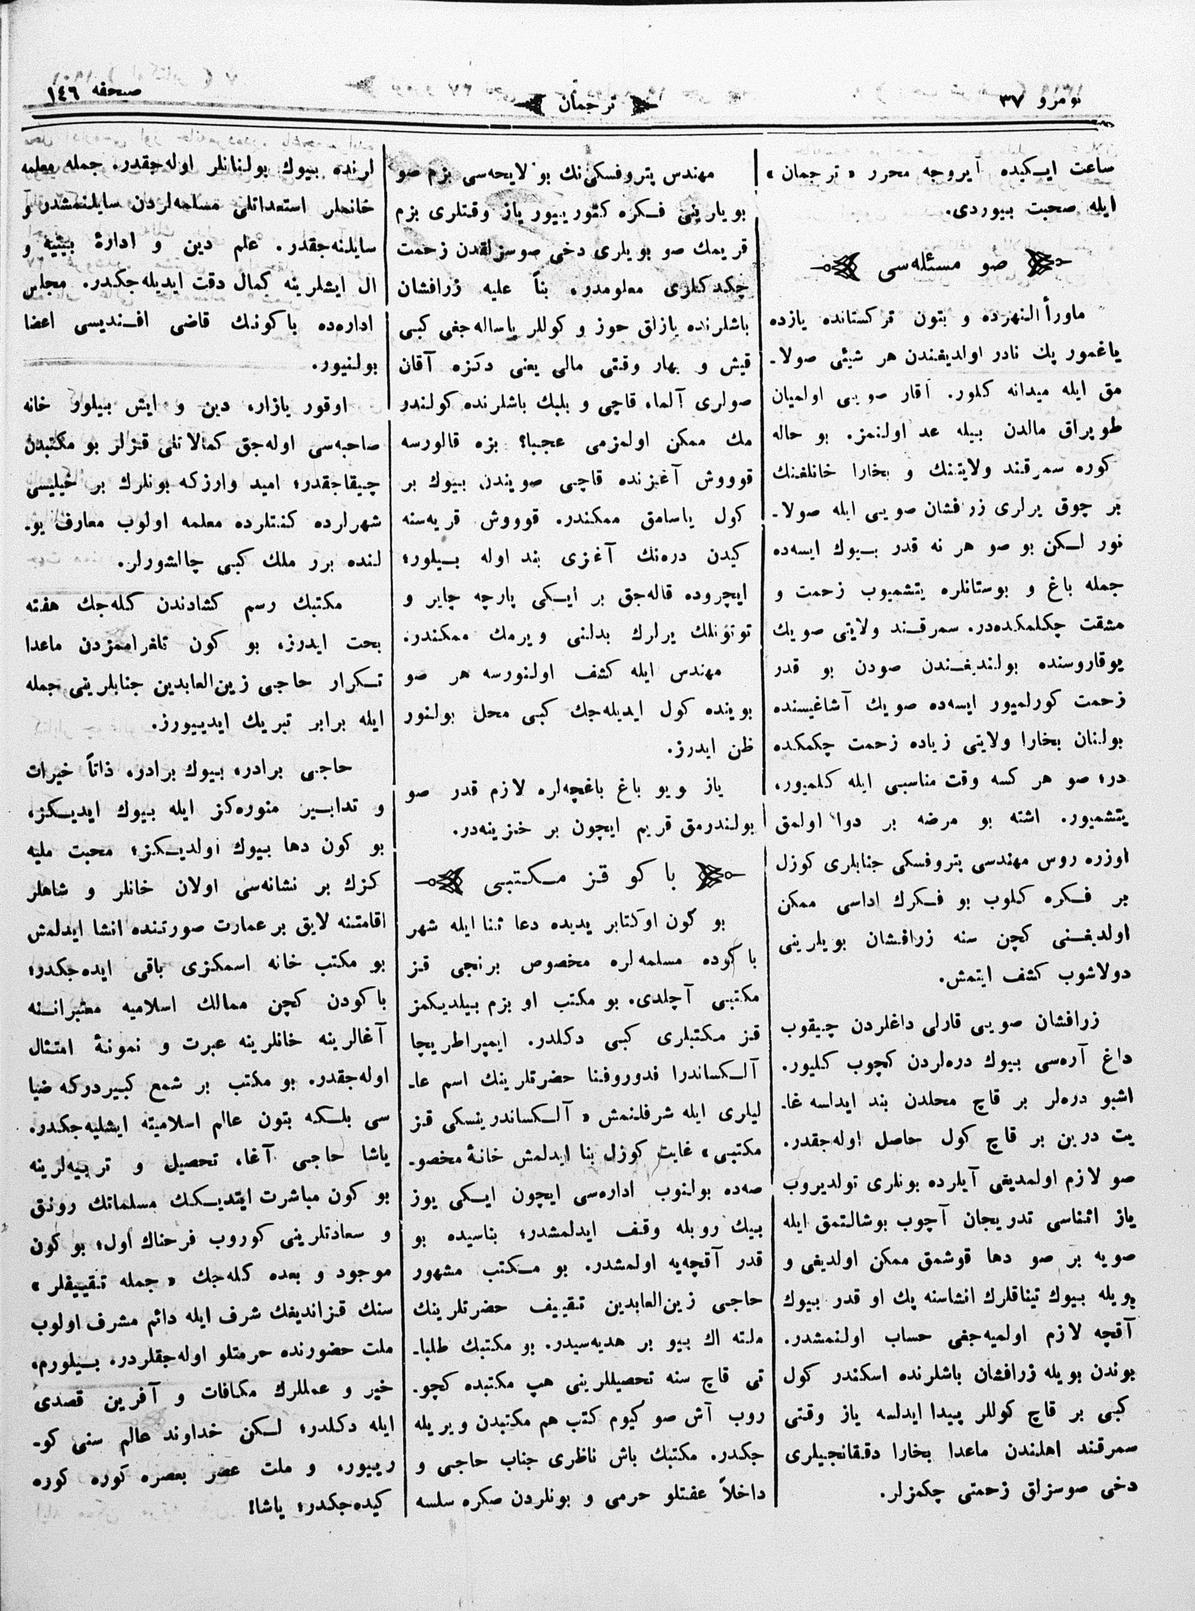 نومرو ٣٧
ترجمان
صحیفه ١٤٦
ساعت ایكیده آیروجه محرر « ترجمان »
ایله صحبت بیوردی.
صو مسئله‌سی
ماورأ النهرده و بتون تركستانده یازده
یاغمور پك نادر اولدیغندن هر شیئی صولا-
مق ایله میدانه كلور. آقار صویی اولمیان
طوپراق مالدن بیله عد اولنمز. بو حاله
كوره سمرقند ولایتنك و بخارا خانلغنك
بر چوق یرلری زرافشان صویی ایله صولا-
نور لكن بو صو هر نه قدر بیوك ایسه‌ده
جمله باغ و بوستانلره یتشمیوب زحمت و
مشقت چكلمكده‌در. سمرقند ولایتی صویك
یوقاروسنده بولندیغندن صودن بو قدر
زحمت كورلمیور ایسه‌ده صویك آشاغیسنده
بولنان بخارا ولایتی زیاده زحمت چكمكده
در؛ صو هر كسه وقت مناسبی ایله كلمیور،
یتشمیور. اشته بو مرضه بر دوا اولمق
اوزره روس مهندسی پتروفسكی جنابلری كوزل
بر فكره كلوب بو فكرك اداسی ممكن
اولدیغنی كچن سنه زرافشان بویلرینی
دولاشوب كشف ایتمش.
زرافشان صویی قارلی داغلردن چیقوب
داغ آره‌سی بیوك دره‌لردن كچوب كلیور.
اشبو دره‌لر بر قاچ محلدن بند ایدلسه غا-
یت درین بر قاچ كول حاصل اوله‌جقدر.
صو لازم اولمدیغی آیلرده بونلری تولدیروب
یاز اثناسی تدریجان آچوب بوشالتمق ایله
صویه بر صو دها قوشمق ممكن اولدیغی و
بویله بیوك تیناقلرك انشاسنه پك او قدر بیوك
آقچه لازم اولمیه‌جغی حساب اولنمشدر.
بوندن بویله زرافشان باشلرنده اسكندر كول
كبی بر قاچ كوللر پیدا ایدلسه یاز وقتی
سمرقند اهلندن ماعدا بخارا دقانجیلری
دخی صوسزلق زحمتی چكمزلر.
مهندس پتروفسكی‌نك بو لایحه‌سی بزم صو
بویارینی فكره كتوریبور یاز وقتلری بزم
قریمك صو بویلری دخی صوسزلقدن زحمت
چكدكلری معلومدر. بناً علیه زرافشان
باشلرنده یازلق حوز و كوللر یاساله‌جغی كبی
قیش و بهار وقتی مالی یعنی دكزه آقان
صولری آلما، قاچی و بلبك باشلرنده كولندر
مك ممكن اولمزمی عجبا؟ بزه قالورسه
قوووش آغزنده قاچی صویندن بیوك بر
كول یاسامق ممكندر. قوووش قریه‌سنه
كیدن دره‌نك آغزی بند اوله بیلور؛
ایچروده قاله‌جق بر ایكی پارچه چایر و
توتونلك یرلرك بدلنی ویرمك ممكندر.
مهندس ایله كشف اولنورسه هر صو
بوینده كول ایدیله‌جك كبی محل بولنور
ظن ایدرز.
یاز وبو باغ باغچه‌لره لازم قدر صو
بولندرمق قریم ایچون بر خزینه‌در.
باكو قز مكتبی
بو كون اوكتابر یدیده دعا ثنا ایله شهر
باكوده مسلمه‌لره مخصوص برنجی قز
مكتبی آچلدی. بو مكتب او بزم بیلدیكمز
قز مكتبلری كبی دكلدر. ایمپراطریچا
آلكساندرا فدوروفنا حضرتلرینك اسم عا-
لیلری ایله شرفلنمش « آلكساندرینسكی قز
مكتبی » غایت كوزل بنا ایدلمش خانۀ مخصو-
صه‌ده بولنوب اداره‌سی ایچون ایكی یوز
بیك روبله وقف ایدلمشدر؛ بناسیده بو
قدر آقچه‌یه اولمشدر. بو مكتب مشهور
حاجی زین‌العابدین تقییف حضرتلرینك
ملته اك بیو بر هدیه‌سیدر. بو مكتبك طلبا-
تی قاچ سنه تحصیللرینی هپ مكتبده كچو-
روب آش صو كیوم كتب هم مكتبدن ویریله
جكدر. مكتبك باش ناظری جناب حاجی و
داخلاً عفتلو حرمی و بونلردن صكره سلسه
لرنده بیوك بولنانلر اوله‌جقدر. جمله معلمه
خانملر استعداتلی مسلمه‌لردن سایلنمشدر و
سایلنه‌جقدر. علم دین و ادارۀ بیتیه و
ال ایشلرینه كمال دقت ایدیله‌جكدر. مجلس
اداره‌ده باكونك قاضی افندیسی اعضا
بولنیور.
اوقور یازار، دین و ایش بیلور خانه
صاحبه‌سی اوله‌جق كمالاتلی قزلر بو مكتبدن
چیقاجقدر؛ امید واردركه بونلرك بر خیلیسی
شهرلرده كنتلرده معلمه اولوب معارف یو-
لنده برر ملك كبی چالشورلر.
مكتبك رسم كشادندن كله‌جك هفته
بحت ایدرز، بو كون تلغراممزدن ماعدا
تكرار حاجی زین‌العابدین جنابلرینی جمله
ایله برابر تبریك ایدییورز.
حاجی برادر، بیوك برادر، ذاتاً خیرات
و تدابیر منوره‌كز ایله بیوك ایدیكز،
بو كون دها بیوك اولدیكز؛ محبت ملیه
كزك بر نشانه‌سی اولان خانلر و شاهلر
اقامتنه لایق بر عمارت صورتنده انشا ایدلمش
بو مكتب خانه اسمكزی باقی ایده‌جكدر؛
باكودن كچن ممالك اسلامیه معتبراننه
آغالرینه خانلرینه عبرت و نمونۀ امتثال
اوله‌جقدر. بو مكتب بر شمع كبیردركه ضیا
سی بلكه بتون عالم اسلامیته ایشلیه‌جكدر.
یاشا حاجی آغا، تحصیل و تربیه‌لرینه
بو كون مباشرت ایتدیكك مسلماتك رونق
و سعادتلرینی كوروب فرحناك اول؛ بو كون
موجود و بعده كله‌جك « جمله تقییفلر »
سنك قزاندیغك شرف ایله دائم مشرف اولوب
ملت حضورنده حرمتلو اوله‌جقلردر. بیلورم،
خیر و عمللرك مكافات و آفرین قصدی
ایله دكلدر؛ لكن خداوند عالم سنی كو-
رییور، و ملت عصر بعصره كوره كوره
كیده‌جكدر؛ یاشا!